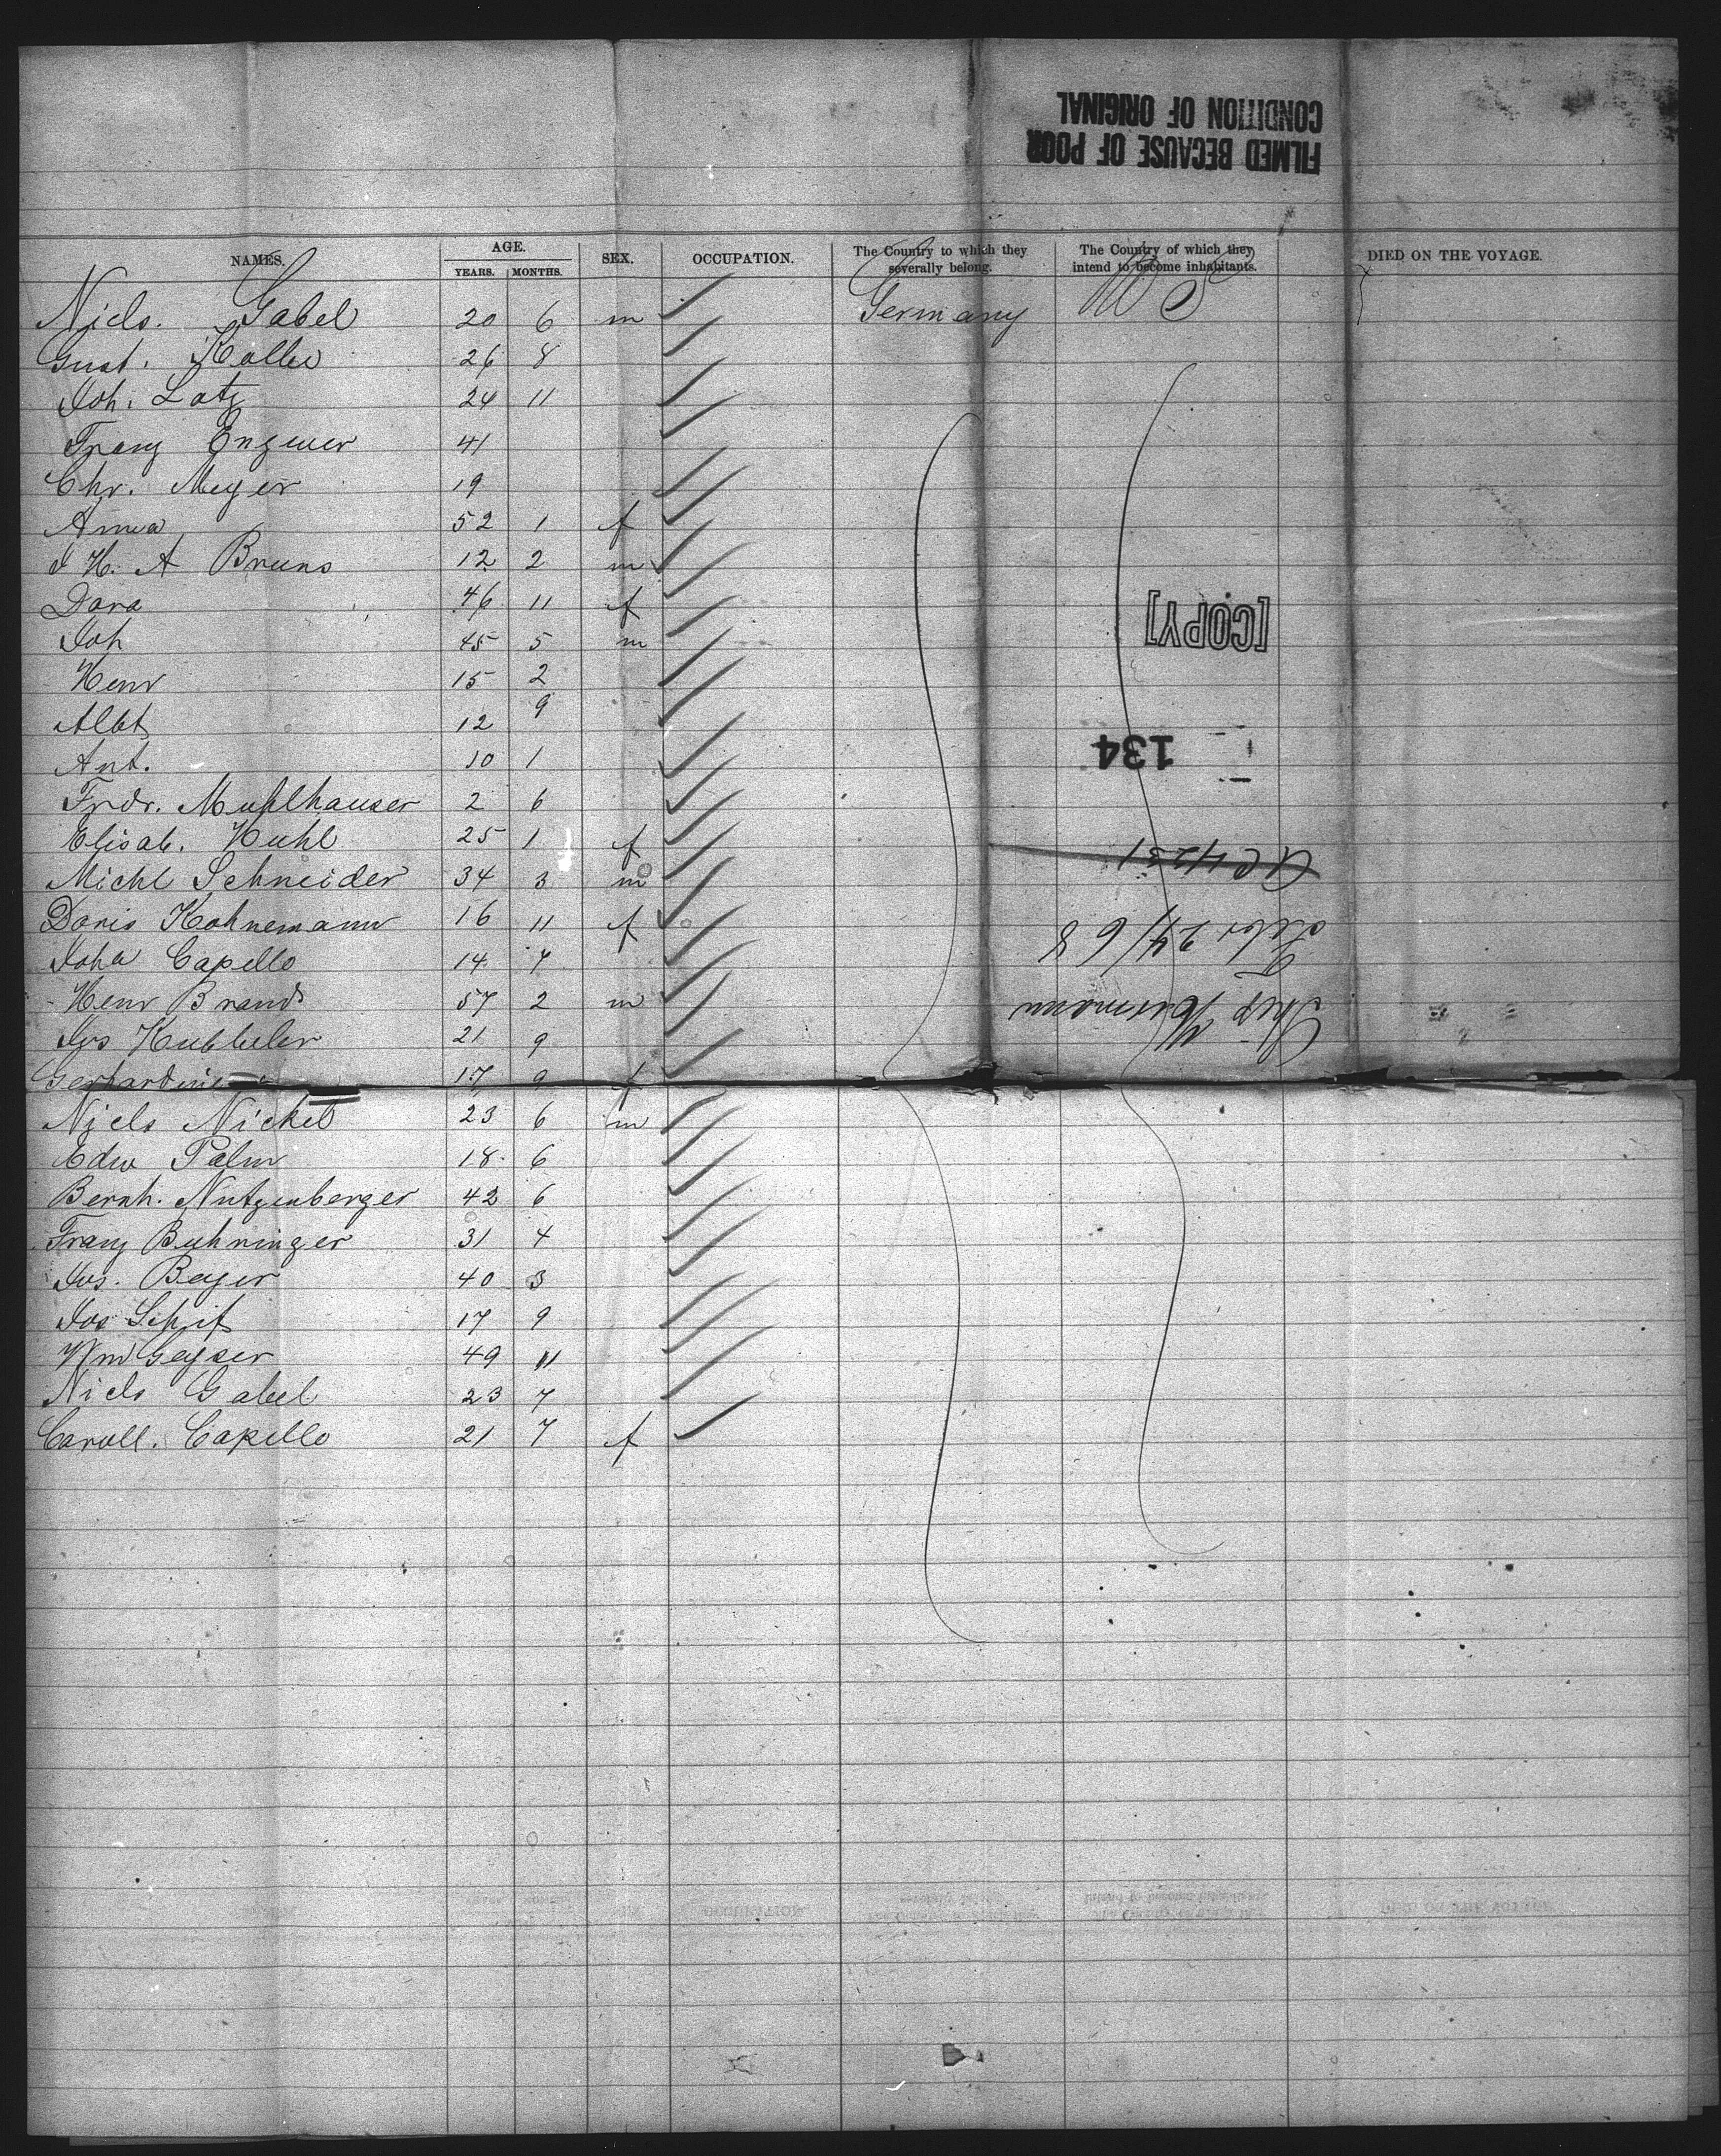 FILMED BECAUSE OF POOR
CONDITION OF ORIGINAL
NAMES. AGE. YEARS. MONTHS. SEX. OCCUPATION. The Country to which they severally belong. The Country of which they intend to become inhabitants. DIED ON THE VOYAGE.
Gabel 20 6 m Germany U S
Gust. 26 8
Joh. Lotz 24 11
Franz 41
Chr. Meyer 19
Anna 52 1 f
J H. A Bruns 12 2 m
Dora 46 11 f
Joh 45 5 m
Henr 15 2
Albt 12 9
Ant. 10 1
Frdr. Muhlhauser 2 6
Elisab. Kuhl 25 1 f
Michl Schneider 34 3 m
Doris Kohnemann 16 11 f
Joha Capello 14 7
Henr Brand 57 2 m
Jos 21 9
Gerhardine 17 9 f
Nickel 23 6 m
Edw Palm 18 6
Bernh. Nutzenberger 42 6
Franz Buhringer 31 4
Jos. Beyer 40 3
Jos Schif 17 9
Wm Geyser 49 11
Gabel 23 7
Caroll. Capello 21 7 f
[COPY]
134
Ship
Febr 24/68